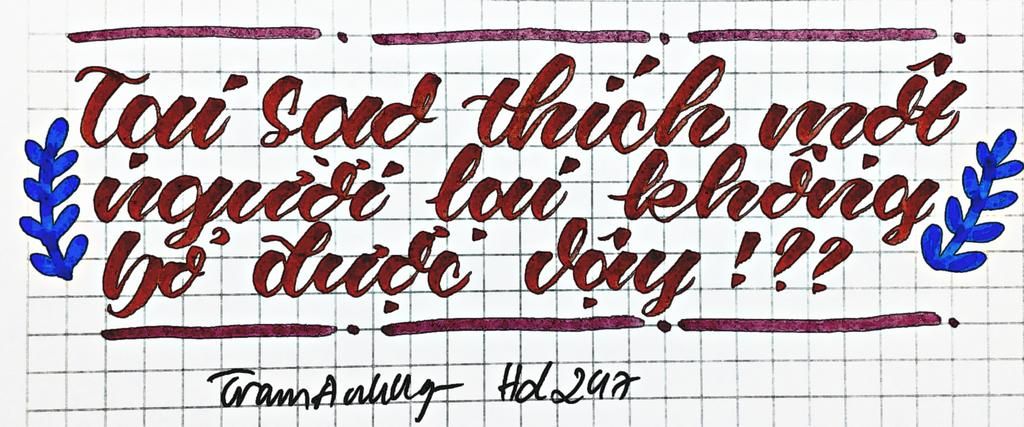 Tại sao thích một
người lại không
bỏ được vậy !??